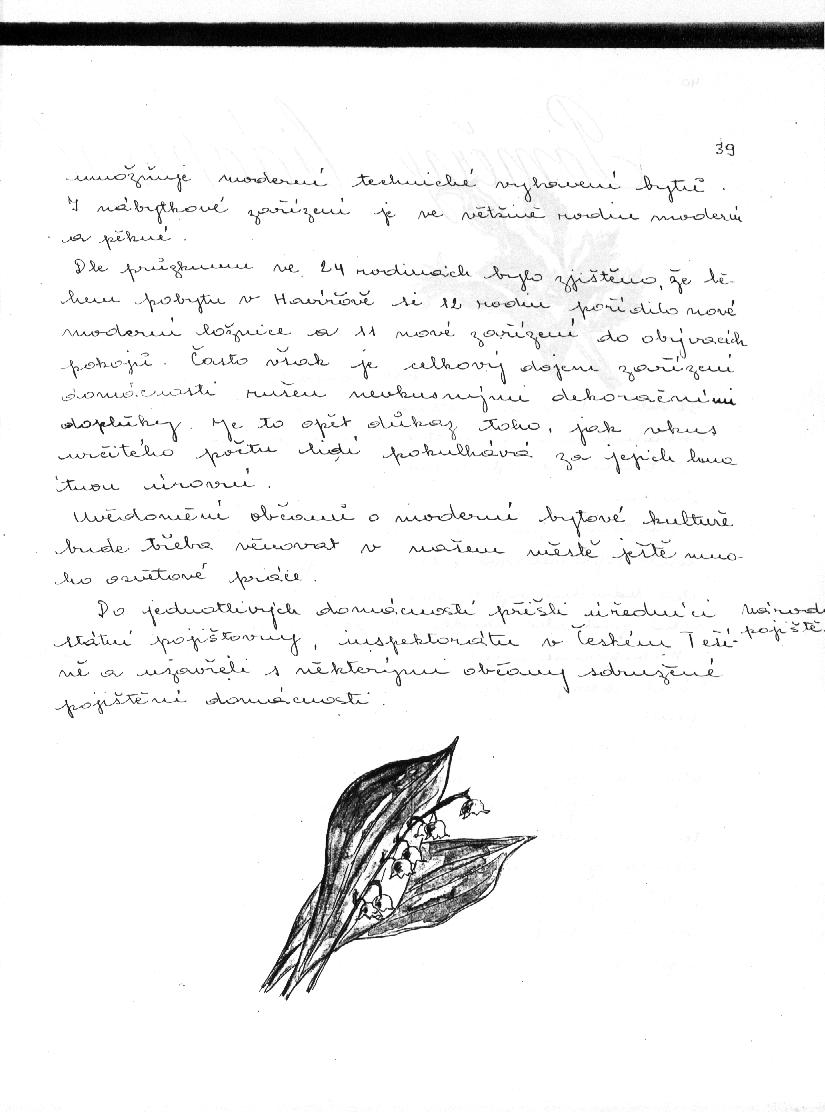 39
umožňuje moderní technické vybavení bytů.
I nábytkové zařízení je ve většině rodin moderní
a pěkné.
Dle průzkumu ve 24 rodinách bylo zjištěno, že bě-
hem pobytu v Havířově si 12 rodin pořídilo nové
moderní ložnice a 11 nové zařízení do obývacích
pokojů. Často však je celkový dojem zařízení
domácnosti rušen nevkusnými dekoračními
doplňky. Je to opět důkaz toho, jak vkus
určitého počtu lidí pokulhává za jejich hmo
tnou úrovní.
Uvědomění občanů o moderní bytové kultuře
bude třeba věnovat v našem městě ještě mno-
ho osvětové práce.
Do jednotlivých domácností přišli úředníci
státní pojišťovny, inspektorátu v Českém Těší-
ně a uzavřeli s některými občany sdružené
pojištění domácností.
pojiště.